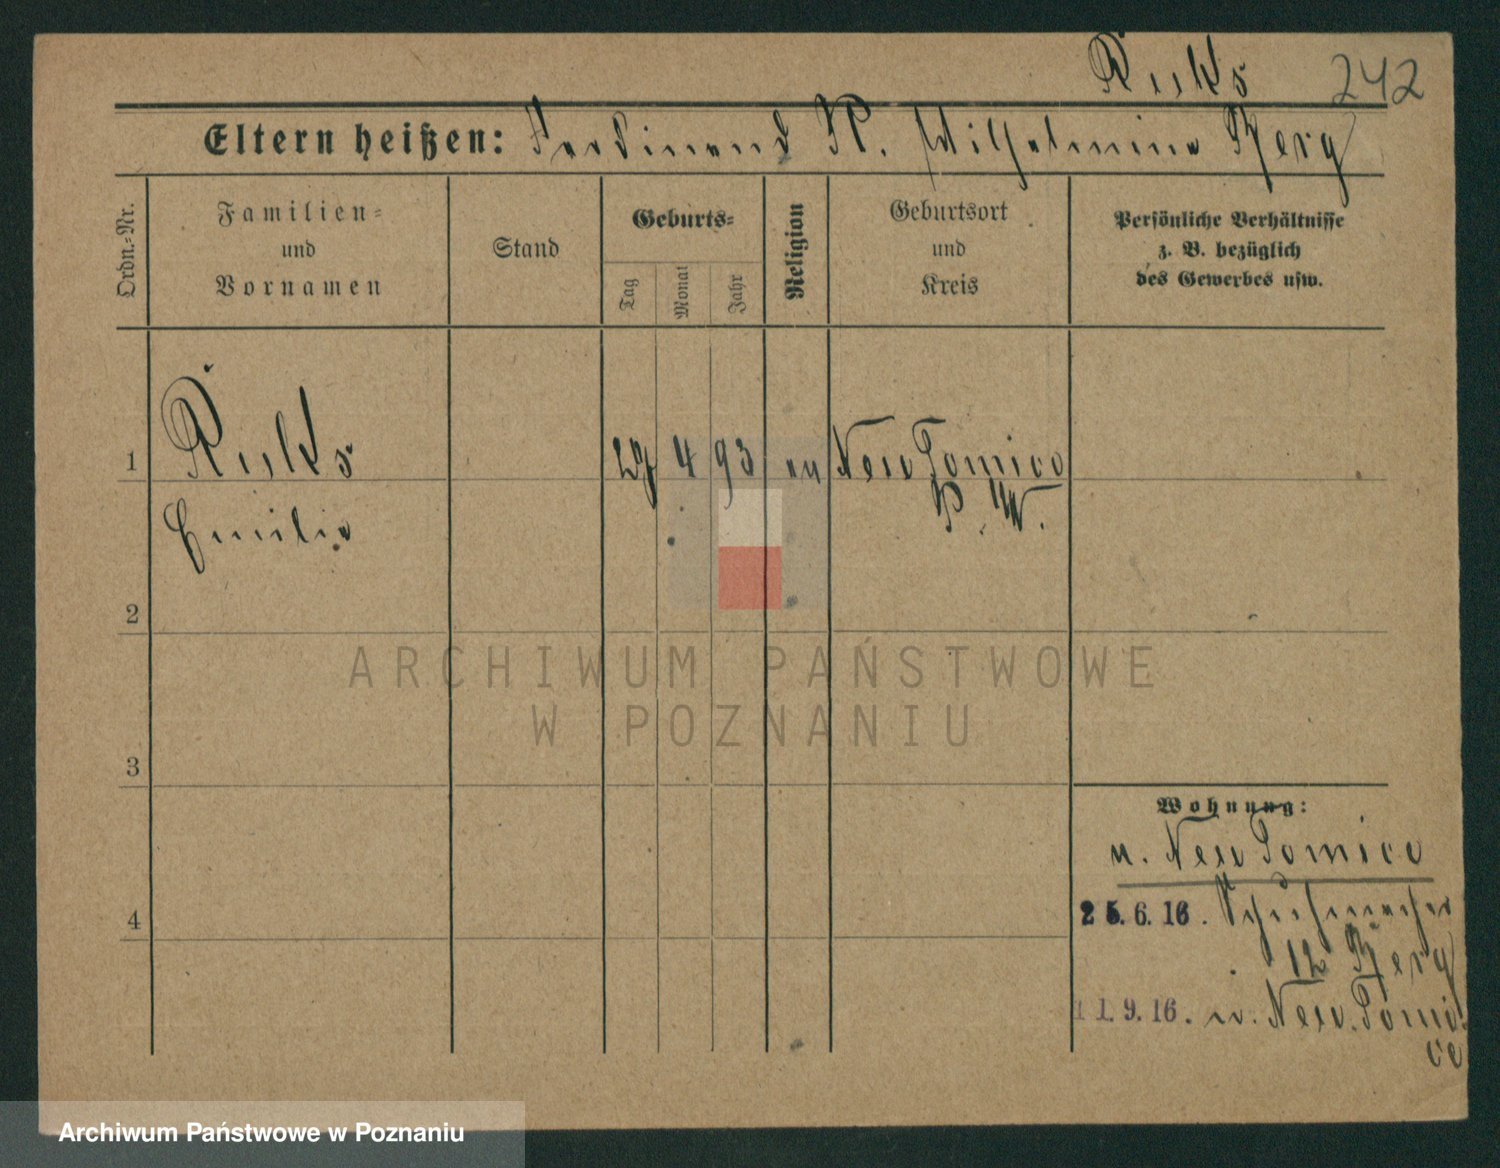 Ruks 242
Eltern heißen: Ferdinand R. Wilhelmine Berg
Ordn.-Nr.
Familien-
und
Vornamen
Stand
Geburts-
Tag
Monat
Jahr
Religion
Geburtsort
und
Kreis
Persönliche Verhältnisse
z. B. bezüglich
des Gewerbes usw.
1 Ruks 27 4 93 ev Neu Tomice
P. W.
Emilie
2
3
4
Wohnung:
n. Neu Tomice
25. 6. 16. Schuhmacher
12 Berg
11. 9. 16. n. Neu Tomi-
ce
ARCHIWUM PAŃSTWOWE
W POZNANIU
Archiwum Państwowe w Poznaniu